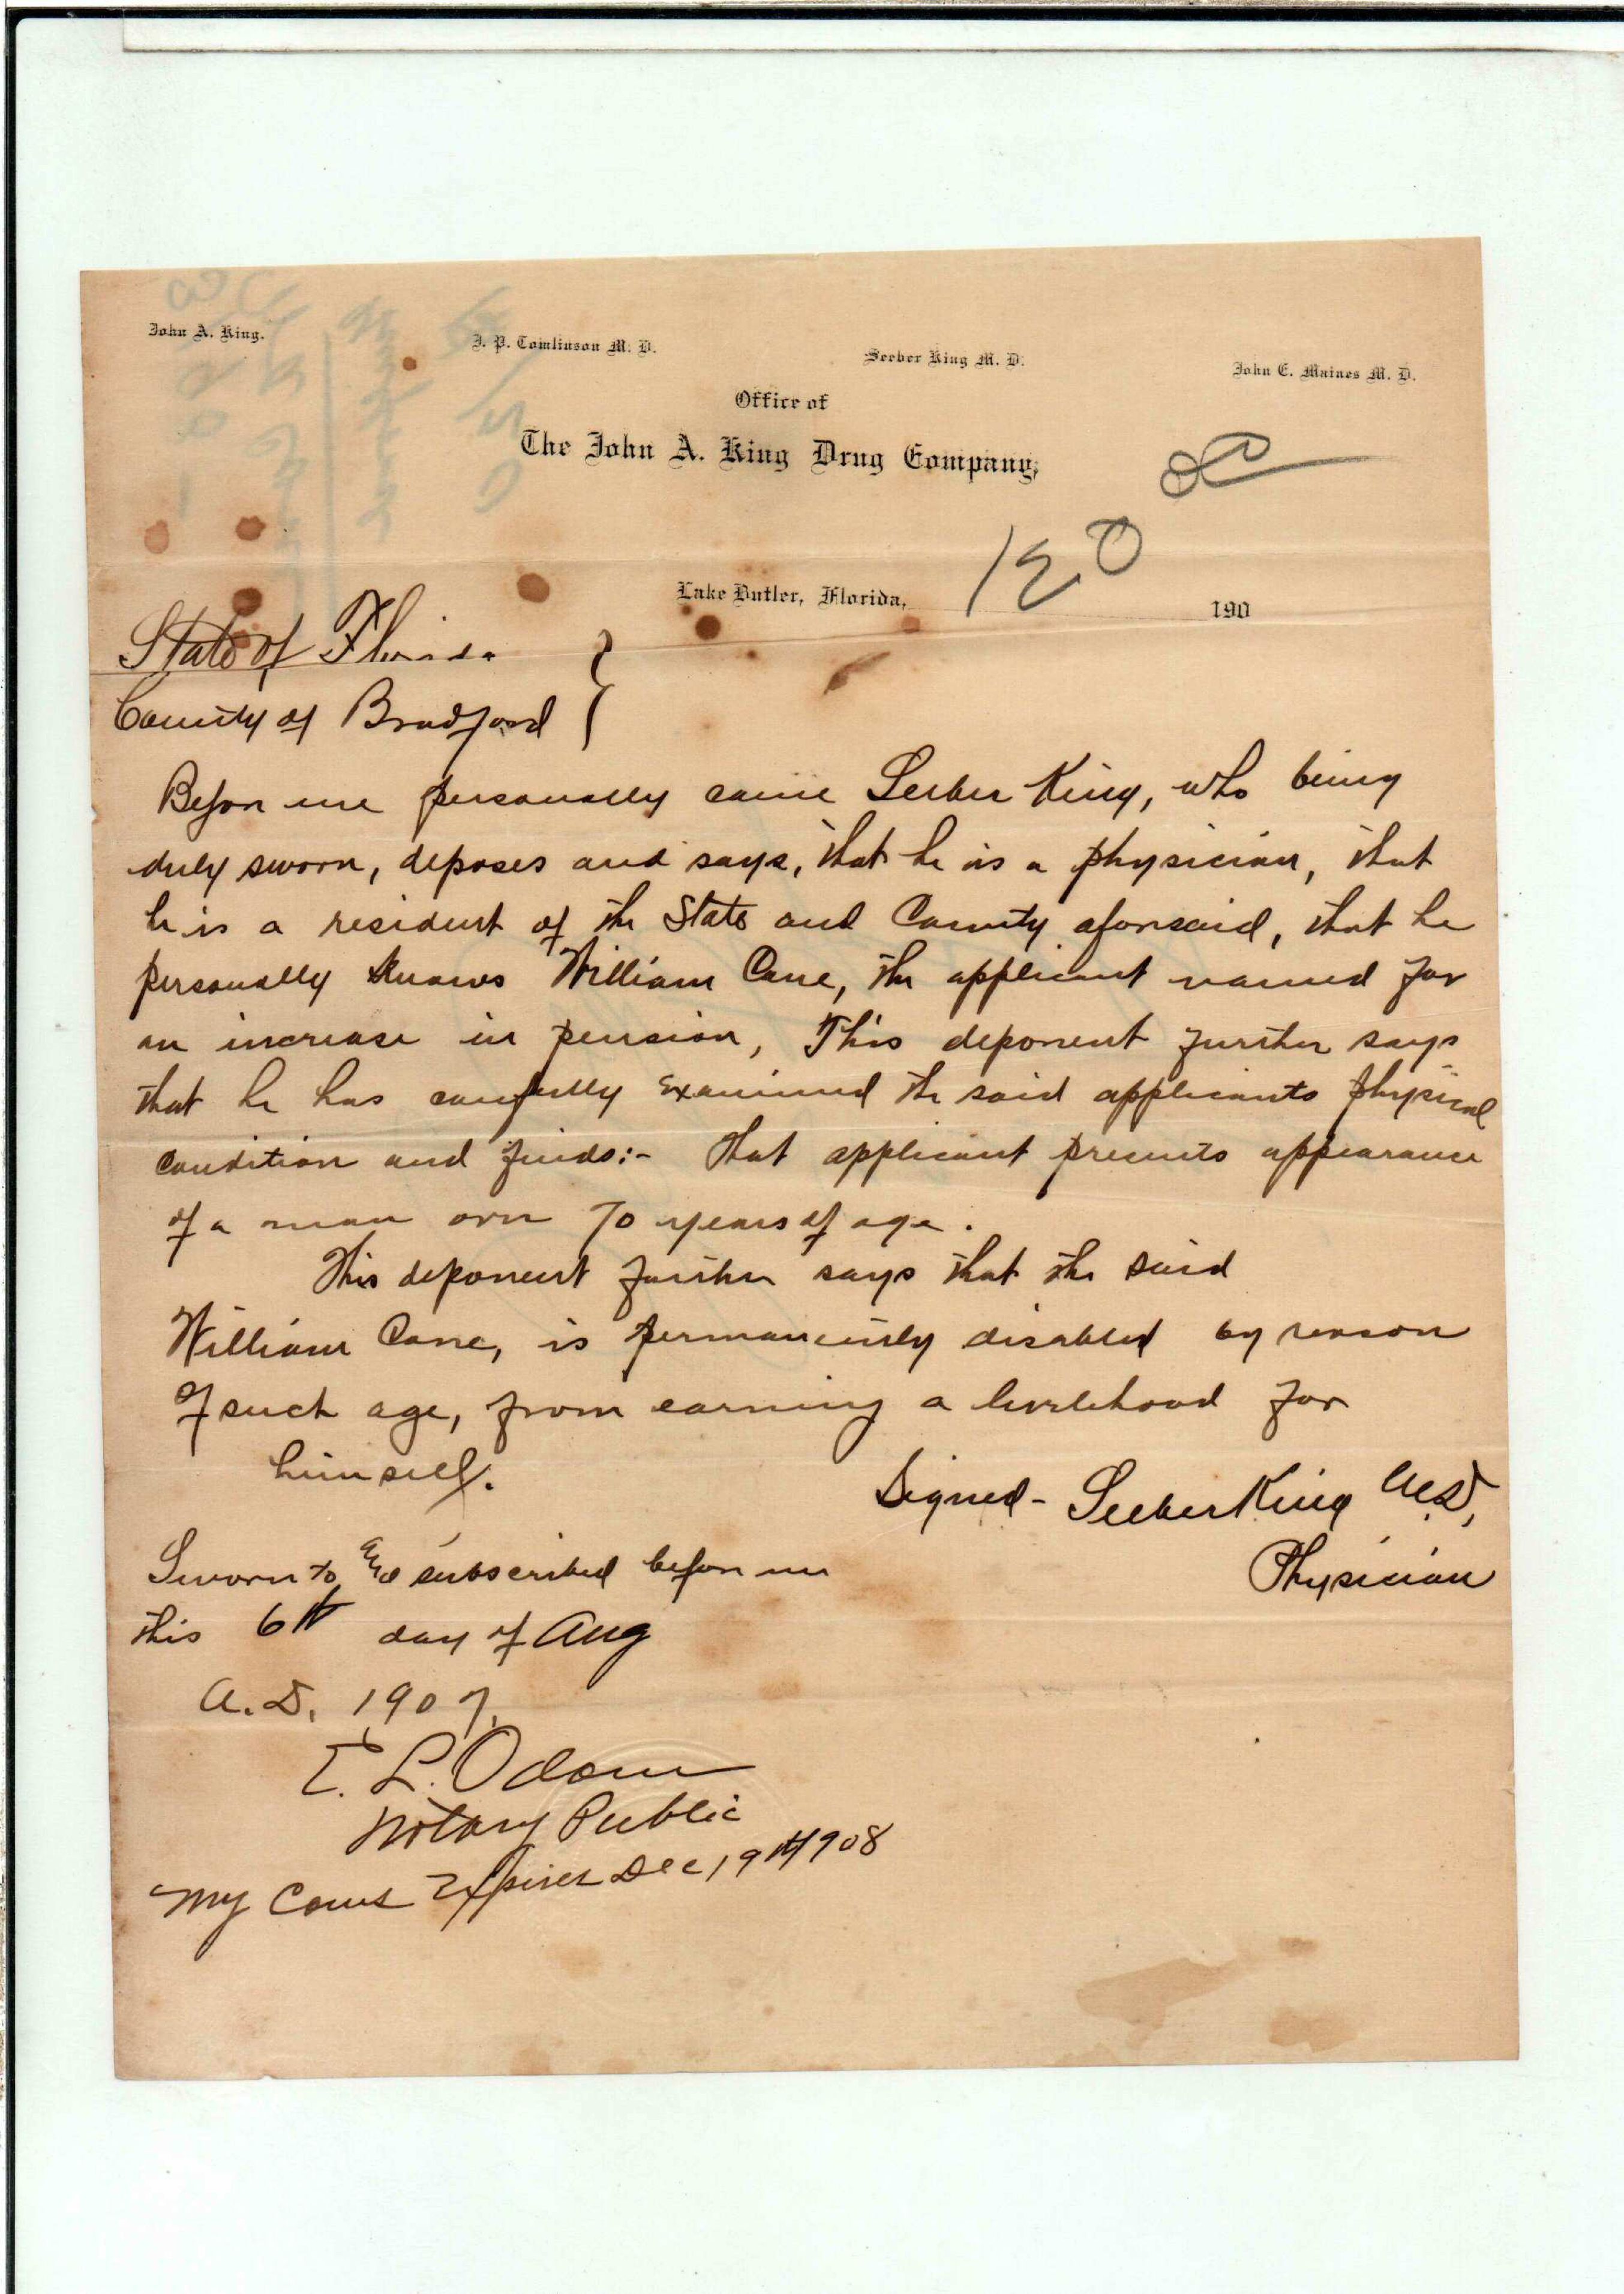 John A. King.
J. P. Tomlinson M. D.
Seeber King M. D.
John E. Maines M. D.
Office of
The John A. King Drug Company,
120
Lake Butler, Florida, 190
State of Florida
County of Bradford
Before me personally came Seeber King, who being
duly sworn, deposes and says, that he is a physician, that
he is a resident of the State and County aforesaid, that he
personally knows William Cane, the applicant named for
an increase in pension, This deponent further says
that he has carefully examined the said applicants physical
condition and finds:- that applicant presents appearance
of a man over 70 years of age.
This deponent further says that the said
William Cane, is permanently disabled by reason
of such age, from earning a livelihood for
himself.
Signed - Seeber King M.D,
Physician
Sworn to and subscribed before me
this 6th day of Aug
A.D. 1907.
E. L. Odom
Notary Public
My Coms Expires Dec 19th 1908